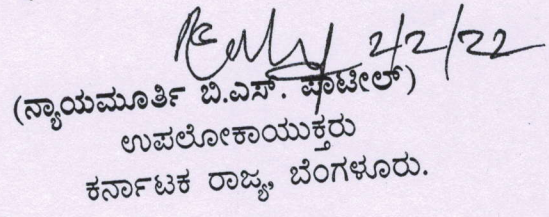 2/2/22
(ನ್ಯಾಯಮೂರ್ತಿ ಬಿ.ಎಸ್. ಪಾಟೀಲ್)
ಉಪಲೋಕಾಯುಕ್ತರು
ಕರ್ನಾಟಕ ರಾಜ್ಯ, ಬೆಂಗಳೂರು.